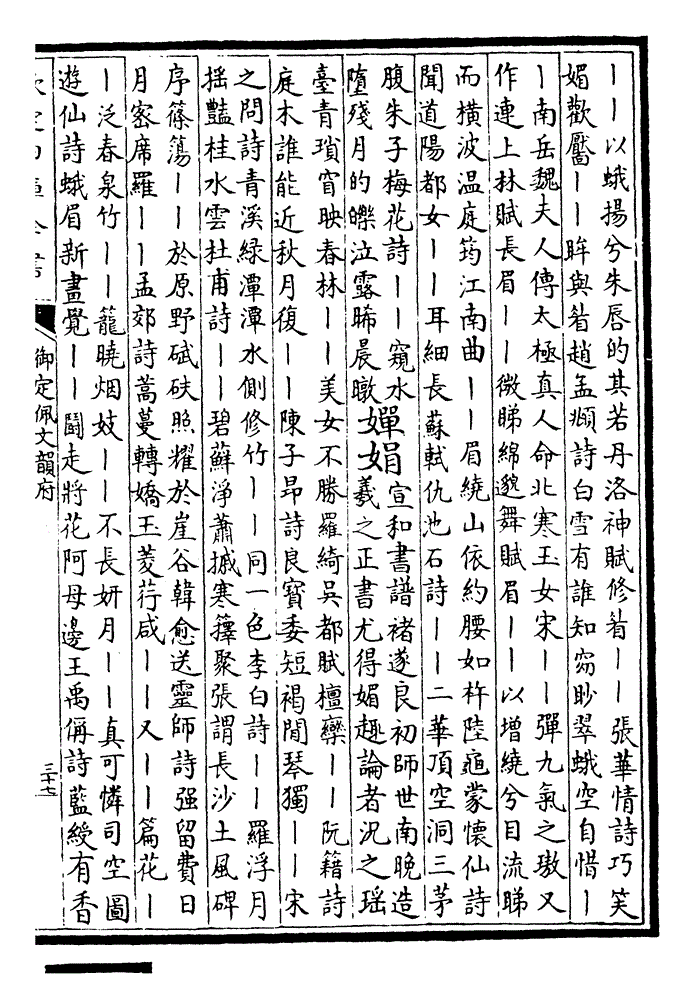 ——以蛾揚兮朱唇的其若丹洛神賦修眉——張華情詩巧笑
媚歡靨——眸與眉趙孟頫詩白雪有誰知窈眇翠蛾空自惜—
—南岳魏夫人傳太極真人命北寒玉女宋——彈九氣之璈又
作連上林賦長眉——微睇綿藐舞賦眉——以增繞兮目流睇
而橫波温庭筠江南曲——眉繞山依約腰如杵陸龜蒙懷仙詩
聞道陽都女——耳細長蘇軾仇池石詩——二華頂空洞三茅
腹朱子梅花詩——窺水
墮殘月的皪泣露晞晨暾
嬋娟
宣和書譜褚遂良初師世南晚造
羲之正書尤得媚趣論者況之瑶
臺青瑣窅映春林——美女不勝羅綺吳都賦檀欒——阮籍詩
庭木誰能近秋月復——陳子昂詩良寳委短褐閒琴獨——宋
之問詩青溪綠潭潭水側修竹——同一色李白詩——羅浮月
揺豔桂水雲杜甫詩——碧蘚淨蕭摵寒籜聚張謂長沙土風碑
序篠蕩——於原野碔砆照耀於崖谷韓愈送靈師詩强留費日
月宻席羅——孟郊詩蒿蔓轉嬌玉菱荇咸——又——篇花—
—泛春泉竹——籠曉烟妓——不長妍月——真可憐司空圖
遊仙詩蛾眉新畫覺——鬭走將花阿母邊王禹偁詩藍綬有香
御定佩文韻府
三十七